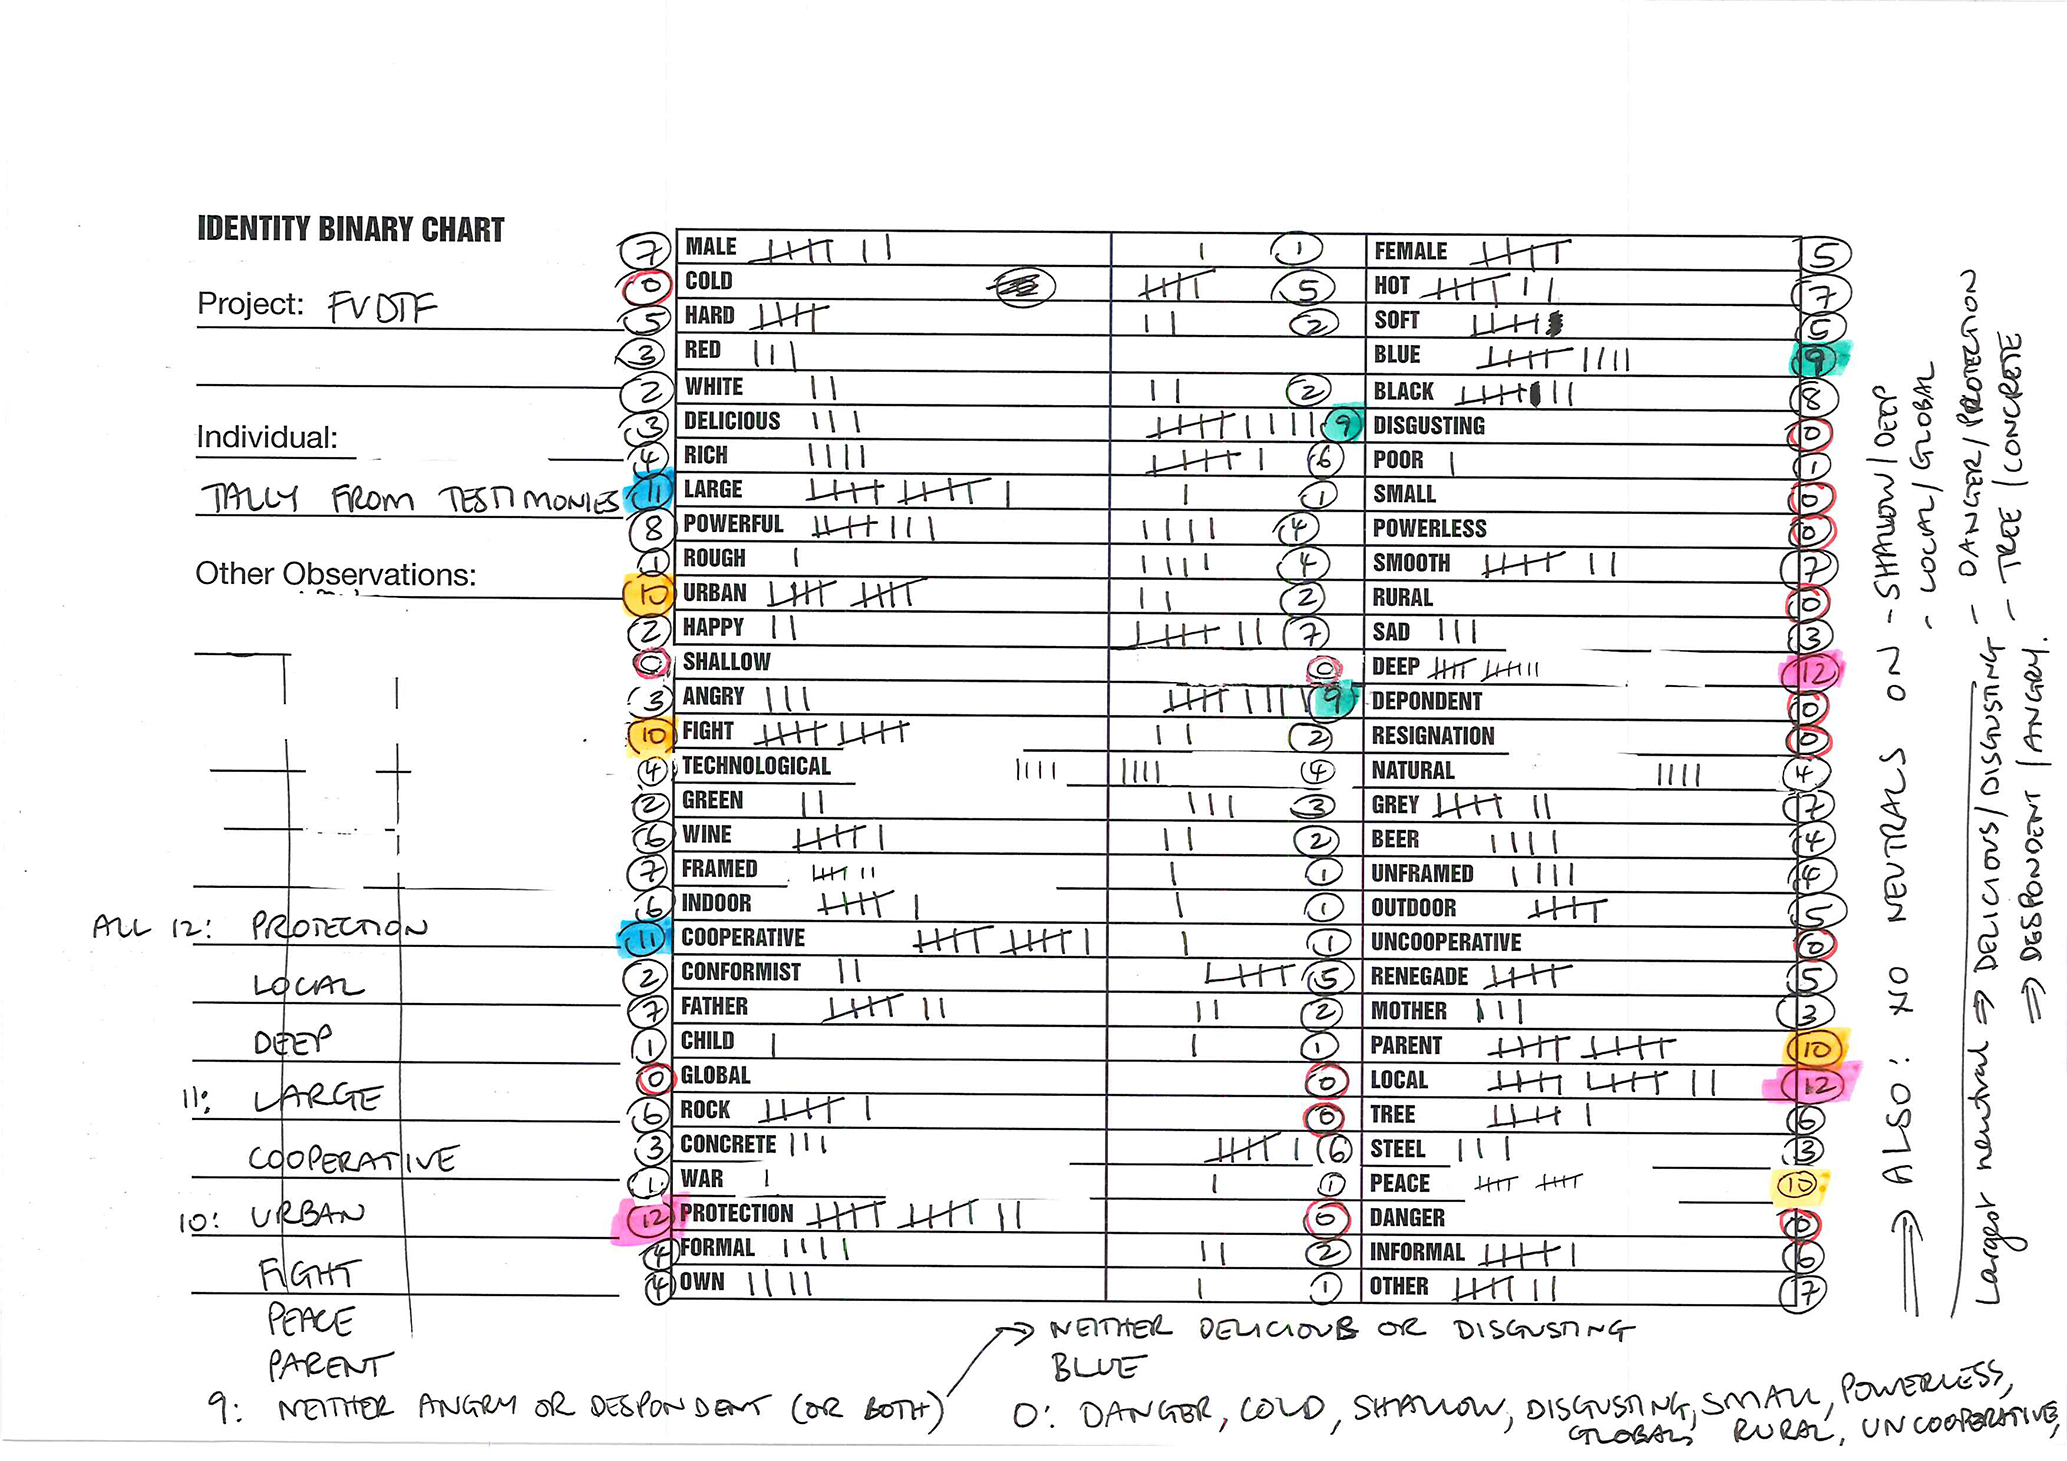 IDENTITY BINARY CHART
Project: FVDTF
Individual:
TALLY FROM TESTIMONIES
Other Observations:
ALL 12: PROTECTION
LOCAL
DEEP
11: LARGE
COOPERATIVE
10: URBAN
FIGHT
PEACE
PARENT
9: NEITHER ANGRY OR DESPONDENT (OR BOTH)
7 MALE 1 FEMALE 5
0 COLD 5 HOT 7
5 HARD 2 SOFT 5
3 RED BLUE 9
2 WHITE 2 BLACK 8
3 DELICIOUS 9 DISGUSTING 0
4 RICH 6 POOR 1
11 LARGE 1 SMALL 0
8 POWERFUL 4 POWERLESS 0
1 ROUGH 4 SMOOTH 7
10 URBAN 2 RURAL 0
2 HAPPY 7 SAD 3
0 SHALLOW 0 DEEP 12
3 ANGRY 9 DEPONDENT 0
10 FIGHT 2 RESIGNATION 0
4 TECHNOLOGICAL 4 NATURAL 4
2 GREEN 3 GREY 7
6 WINE 2 BEER 4
7 FRAMED 1 UNFRAMED 4
6 INDOOR 1 OUTDOOR 5
11 COOPERATIVE 1 UNCOOPERATIVE 0
2 CONFORMIST 5 RENEGADE 5
7 FATHER 2 MOTHER 3
1 CHILD 1 PARENT 10
0 GLOBAL 0 LOCAL 12
6 ROCK 0 TREE 6
3 CONCRETE 6 STEEL 3
1 WAR 1 PEACE 10
12 PROTECTION 0 DANGER 0
4 FORMAL 2 INFORMAL 6
4 OWN 1 OTHER 7
NEITHER DELICIOUS OR DISGUSTING
BLUE
0: DANGER, COLD, SHALLOW, DISGUSTING, SMALL, POWERLESS,
GLOBAL, RURAL, UNCOOPERATIVE,
⇒ ALSO: NO NEUTRALS ON - SHALLOW/DEEP
- LOCAL/GLOBAL
- DANGER/PROTECTION
- TREE/CONCRETE
Largest neutral ⇒ DELICIOUS/DISGUSTING
⇒ DESPONDENT/ANGRY.